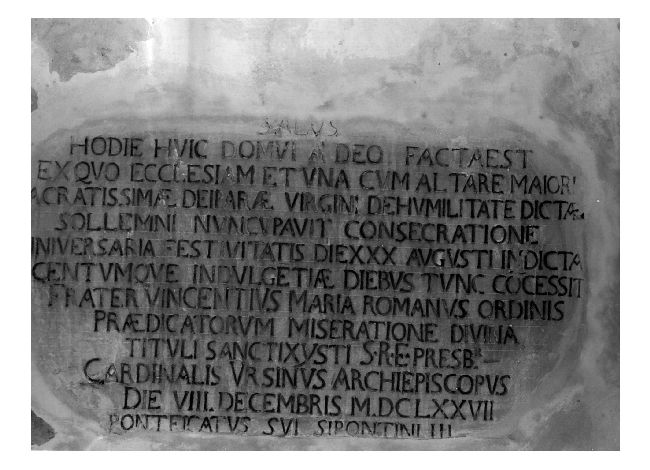 SALVS
HODIE HVIC DOMVI A DEO FACTAEST
EXQVO ECCLESIAM ET VNA CVM ALTARE MAIORI
ACRATISSIMÆ DEIPARÆ VIRGINI DEHVMILITATE DICTÆ
SOLLEMNI NVNCVPAVIT CONSECRATIONE
NIVERSARIA FESTIVITATIS DIEXXX AVGVSTI INDICTA
CENTVMQVE INDVLGETIÆ DIEBVS TVNC COCESSIT
FRATER VINCENTIVS MARIA ROMANVS ORDINIS
PRÆDICATORVM MISERATIONE DIVINA
TITVLI SANCTIXVSTI S·R·E·PRESB.
CARDINALIS VRSINVS ARCHIEPISCOPVS
DIE VIII. DECEMBRIS M.DCLXXVII
PONTFICATVS SVI SIPONTINI III